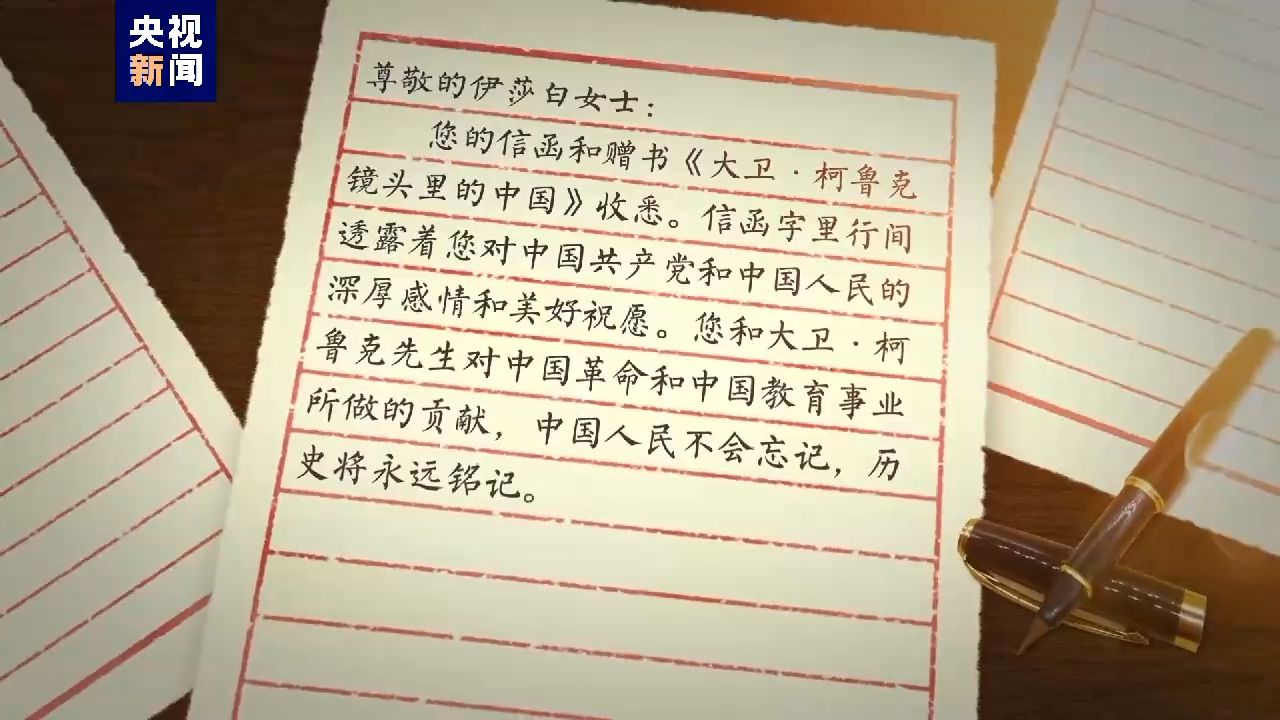 央视
新闻
尊敬的伊莎白女士：
您的信函和赠书《大卫·柯鲁克
镜头里的中国》收悉。信函字里行间
透露着您对中国共产党和中国人民的
深厚感情和美好祝愿。您和大卫·柯
鲁克先生对中国革命和中国教育事业
所做的贡献，中国人民不会忘记，历
史将永远铭记。